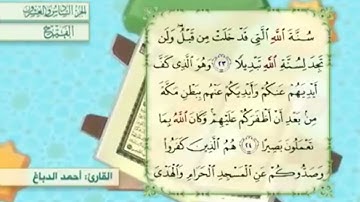 الجزء السادس والعشرون
الفتح
سُنَّةَ اللَّهِ الَّتِي قَدْ خَلَتْ مِن قَبْلُ وَلَن
تَجِدَ لِسُنَّةِ اللَّهِ تَبْدِيلًا ﴿٢٣﴾ وَهُوَ الَّذِي كَفَّ
أَيْدِيَهُمْ عَنكُمْ وَأَيْدِيَكُمْ عَنْهُم بِبَطْنِ مَكَّةَ
مِن بَعْدِ أَنْ أَظْفَرَكُمْ عَلَيْهِمْ وَكَانَ اللَّهُ بِمَا
تَعْمَلُونَ بَصِيرًا ﴿٢٤﴾ هُمُ الَّذِينَ كَفَرُوا
وَصَدُّوكُمْ عَنِ الْمَسْجِدِ الْحَرَامِ وَالْهَدْيَ
القارئ: أحمد الدباغ